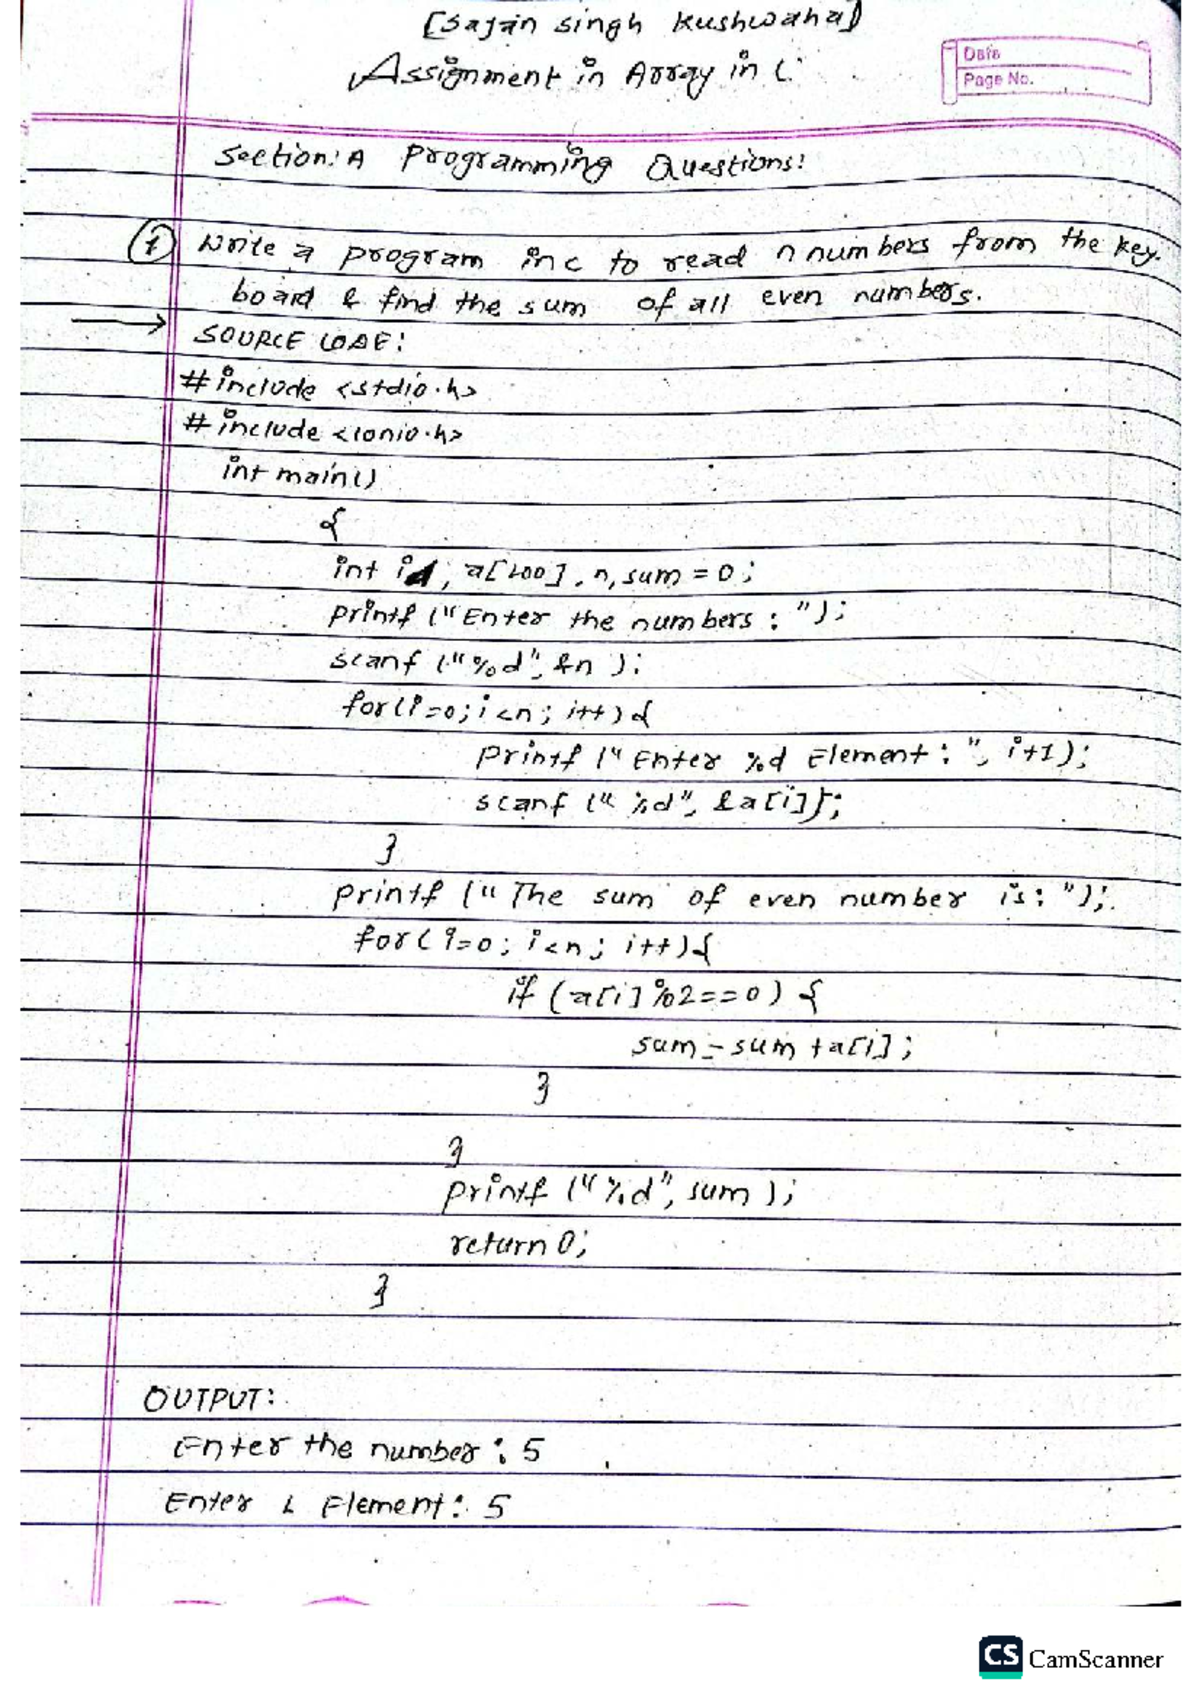 [Sajan Singh Kushwaha]
Assignment in Array in C.
Date
Page No.
Section: A Programming Questions:
1 Write a program in c to read n numbers from the key-
board & find the sum of all even numbers.
SOURCE CODE:
#include <stdio.h>
#include <conio.h>
int main()
{
int i, a[100], n, sum = 0;
printf ("Enter the numbers : ");
scanf ("%d", &n );
for(i=0; i<n ; i++) {
printf ("Enter %d Element : ", i+1);
scanf ("%d", &a[i]);
}
printf ("The sum of even number is: ");
for( i=0; i<n; i++){
if (a[i]%2==0) {
sum = sum + a[i];
}
}
printf ("%d", sum );
return 0;
}
OUTPUT:
Enter the number : 5
Enter 1 Element : 5
CS CamScanner